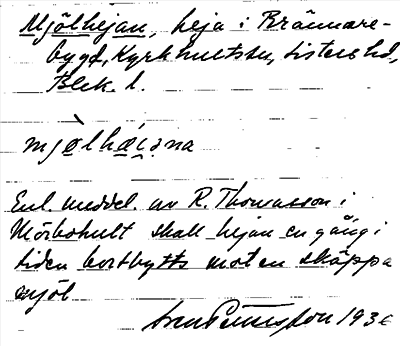 Mjölhejan, heja i Brännare-
bygd, Kyrkhultssn, Listers hd,
Blek. l.
mjö̀lhǽi̯əna
Enl. meddel. av R. Thomasson i
Mörbohult skall hejan en gång i
tiden bortbytts mot en skäppa
mjöl
1936